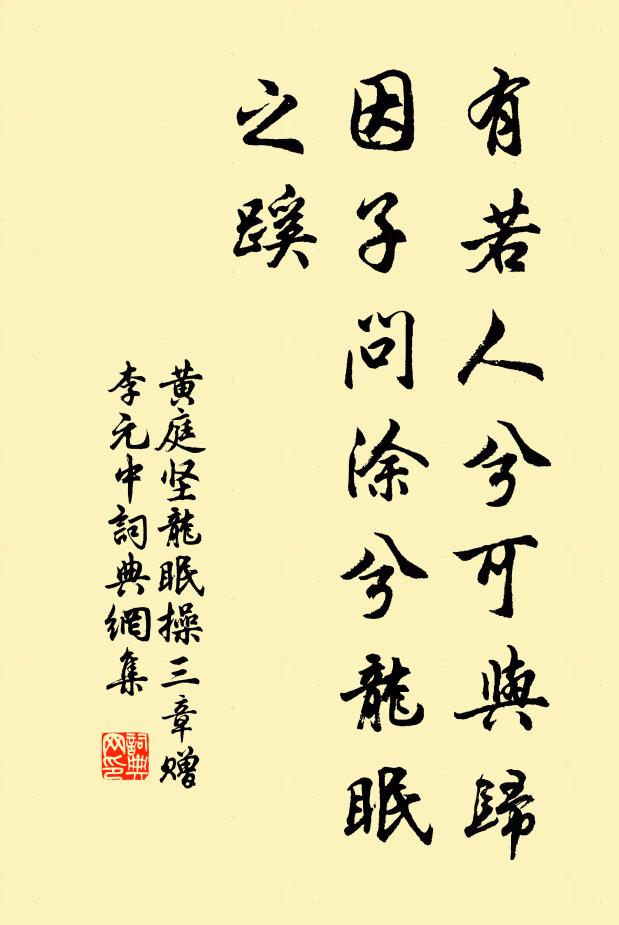 有若人兮可與歸
因子問涂兮龍眠
之蹊
黃庭坚龍眠操三章赠
李元中詞典網集
詞典
网印